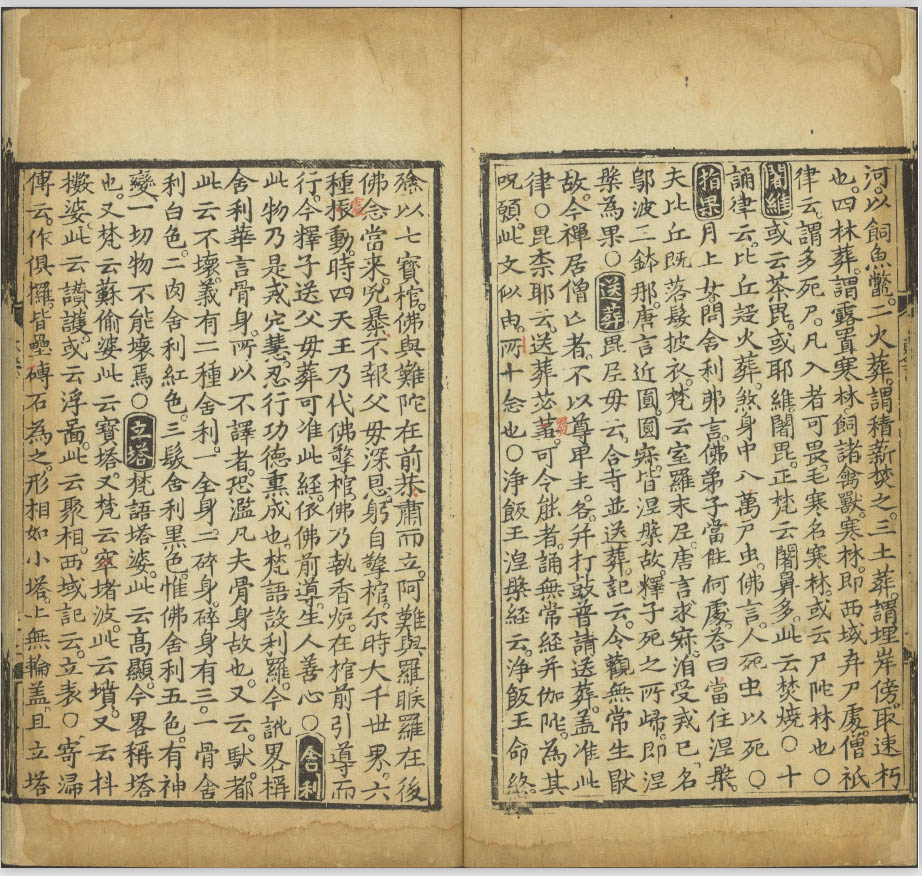 河。以飼魚鱉。二火葬。謂積薪焚之。三土葬。謂埋岸傍。取速朽
也。四林葬。謂露置寒林。飼諸禽獸。寒林。即西域弃尸處。僧祇
律云。謂多死尸。凡入者可畏毛寒名寒林。或云尸陁林也○
闍維或云茶毘。或耶維。闍毘。正梵云闍鼻多。此云焚燒○十
誦律云。比丘疑火葬。煞身中八萬户虫。佛言。人死虫以死○
指果月上女問舍利弗言。佛弟子當徃何處。荅曰。當住涅槃。
夫比丘既落髮披衣。梵云室羅末尼。唐言求寂。洎受戒已。名
鄔波三鉢那。唐言近圓。圓寂皆涅槃故。釋子死之所歸。即涅
槃為果○送葬毘尼母云。合寺並送葬。記云。令觀無常生猒
故。今禪居僧亡者。不以尊卑主。各并打鼓普請送葬。盖准此
律○毘柰耶云。送葬苾蒭。可令能者。誦無常経并伽陁。為其
呪願。此文似由。所十念也○淨飯王涅槃経云。淨飯王命終。
殮以七寳棺。佛與難陀在前恭肅而立。阿難與羅睺羅在後
佛念當来。兇暴不報父毋深恩。躬自擎棺。尔時大千世界。六
種振動。時四天王乃代佛擎棺。佛乃執香爐。在棺前引導而
行。今釋子送父毋葬可准此経。依佛前道。生人善心○舎利
此物乃是戒定慧。忍行功德熏成也。梵語設利羅。今訛畧稱
舎利。華言骨身。所以不譯者。恐濫凡夫骨身故也。又云。馱都
此云不壞。義有二種舎利。一全身。二碎身。碎身有三。一骨舎
利白色。二肉舎利紅色。三髮舎利黑色。惟佛舎利五色。有神
變。一切物不能壞焉○立塔梵語塔婆。此云髙顯。今畧稱塔
也。又梵云蘇偷婆。此云寳塔。又梵云窣堵波。此云墳。又云抖
擻婆。此云讃護。或云浮圖。此云聚相。西域記云。立表○寄㱕
傳云。作俱攞皆壘磚石為之。形相如小塔。上無輪盖。且立塔